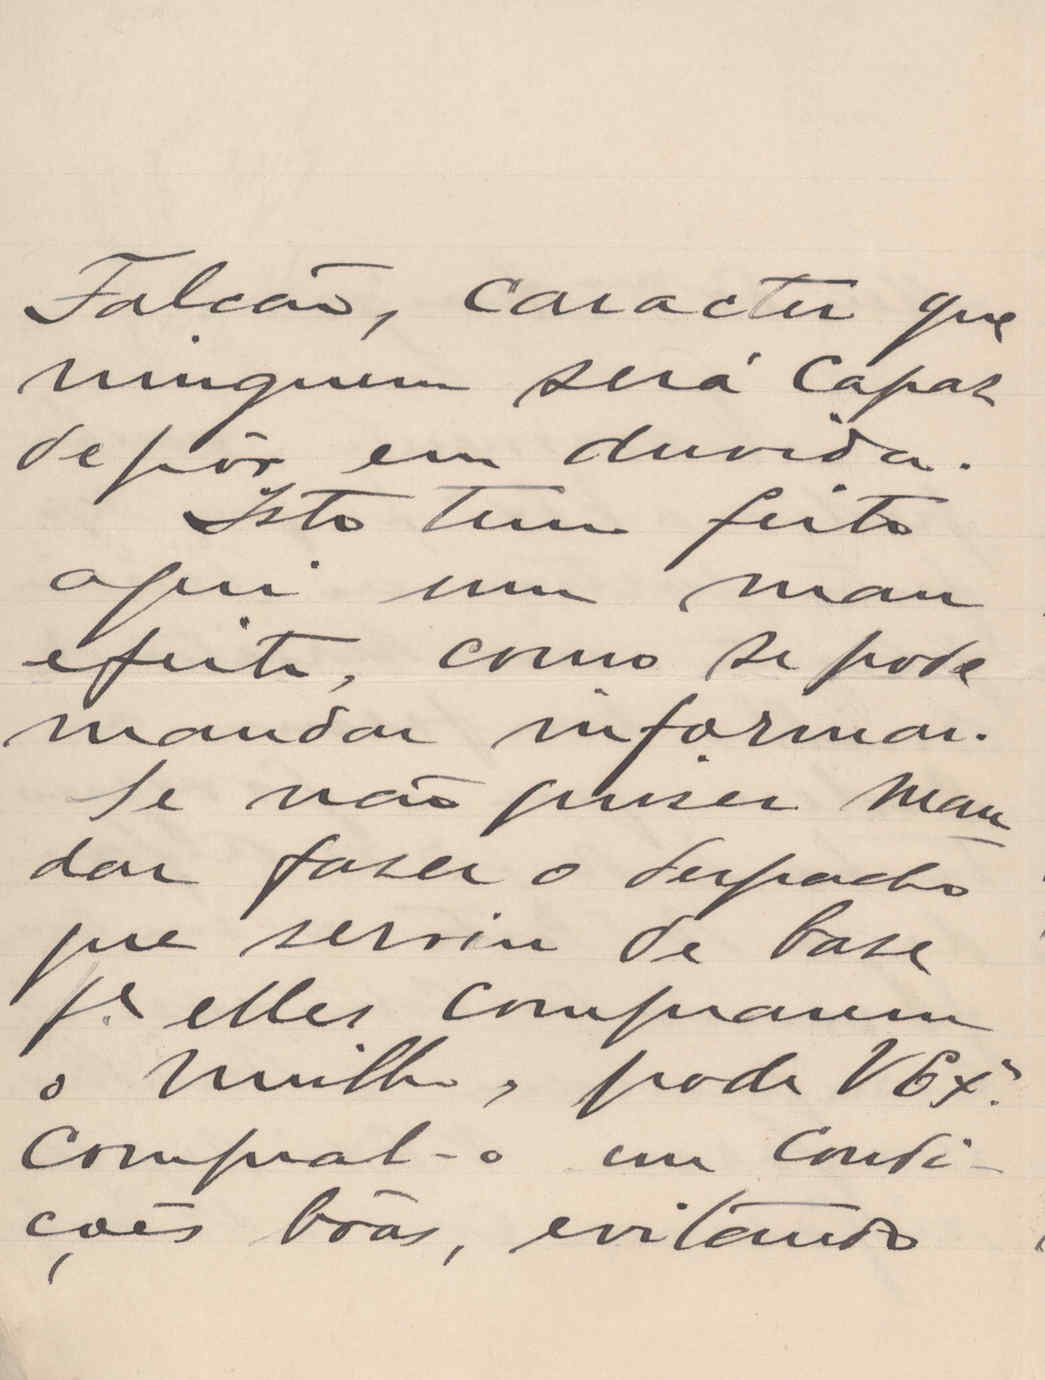 Falcão, caracter que
ninguem será capaz
de pôr em duvida.
Isto tem feito
aqui um mau
efeito, como se pode
mandar informar.
Se não quiser man
dar faser o despacho
que serviu de base
pª elles comprarem
o milho, pode V Exª
compral-o em condi-
ções bôas, evitando